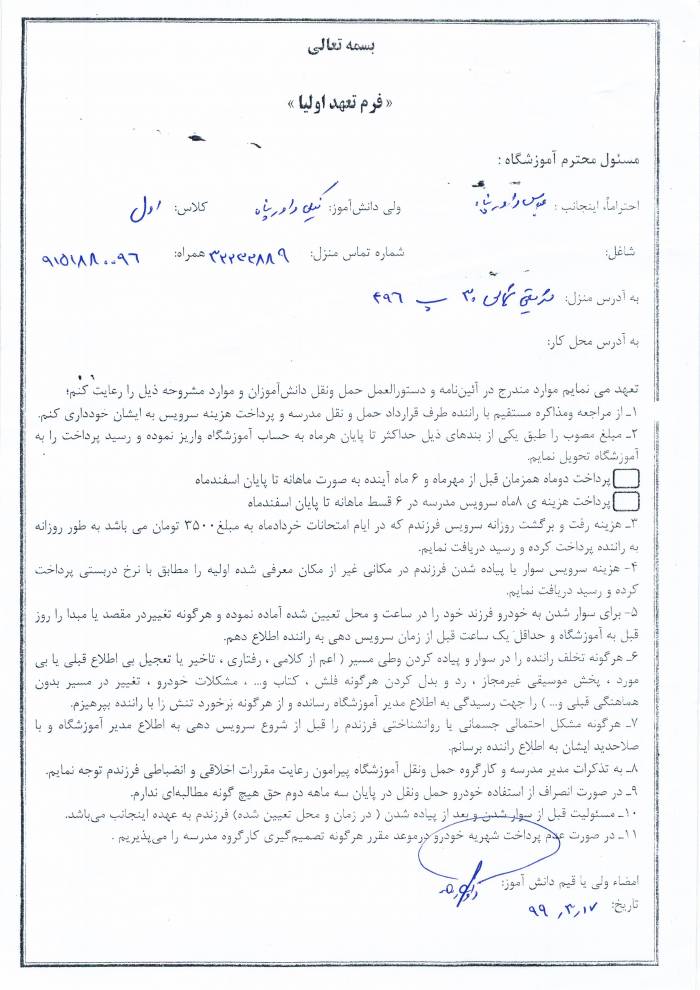 بسمه تعالی
« فرم تعهد اولیا »
مسئول محترم آموزشگاه :
احتراماً، اینجانب : عباس داورپناه ولی دانش‌آموز: نیکی داورپناه کلاس: اول
شاغل: شماره تماس منزل: ۳۲۲۳۲۸۸۹ همراه: ۹۱۵۱۸۸۰۰۹۶
به آدرس منزل: شمالی ۳۰ پ ۴۹۶
به آدرس محل کار:
تعهد می نمایم موارد مندرج در آئین‌نامه و دستورالعمل حمل ونقل دانش‌آموزان و موارد مشروحه ذیل را رعایت کنم؛
۱ـ از مراجعه ومذاکره مستقیم با راننده طرف قرارداد حمل و نقل مدرسه و پرداخت هزینه سرویس به ایشان خودداری کنم.
۲ـ مبلغ مصوب را طبق یکی از بندهای ذیل حداکثر تا پایان هرماه به حساب آموزشگاه واریز نموده و رسید پرداخت را به
آموزشگاه تحویل نمایم.
پرداخت دوماه همزمان قبل از مهرماه و ۶ ماه آینده به صورت ماهانه تا پایان اسفندماه
پرداخت هزینه ی ۸ماه سرویس مدرسه در ۶ قسط ماهانه تا پایان اسفندماه
۳ـ هزینه رفت و برگشت روزانه سرویس فرزندم که در ایام امتحانات خردادماه به مبلغ۳۵۰۰ تومان می باشد به طور روزانه
به راننده پرداخت کرده و رسید دریافت نمایم.
۴- هزینه سرویس سوار یا پیاده شدن فرزندم در مکانی غیر از مکان معرفی شده اولیه را مطابق با نرخ دربستی پرداخت
کرده و رسید دریافت نمایم.
۵- برای سوار شدن به خودرو فرزند خود را در ساعت و محل تعیین شده آماده نموده و هرگونه تغییردر مقصد یا مبدا را روز
قبل به آموزشگاه و حداقل یک ساعت قبل از زمان سرویس دهی به راننده اطلاع دهم.
۶ـ هرگونه تخلف راننده را در سوار و پیاده کردن وطی مسیر ( اعم از کلامی ، رفتاری ، تاخیر یا تعجیل بی اطلاع قبلی یا بی
مورد ، پخش موسیقی غیرمجاز ، رد و بدل کردن هرگونه فلش ، کتاب و... ، مشکلات خودرو ، تغییر در مسیر بدون
هماهنگی قبلی و... ) را جهت رسیدگی به اطلاع مدیر آموزشگاه رسانده و از هرگونه برخورد تنش زا با راننده بپرهیزم.
۷ـ هرگونه مشکل احتمالی جسمانی یا روانشناختی فرزندم را قبل از شروع سرویس دهی به اطلاع مدیر آموزشگاه و با
صلاحدید ایشان به اطلاع راننده برسانم.
۸ـ به تذکرات مدیر مدرسه و کارگروه حمل ونقل آموزشگاه پیرامون رعایت مقررات اخلاقی و انضباطی فرزندم توجه نمایم.
۹ـ در صورت انصراف از استفاده خودرو حمل ونقل در پایان سه ماهه دوم حق هیچ گونه مطالبه‌ای ندارم.
۱۰ـ مسئولیت قبل از سوار شدن و بعد از پیاده شدن ( در زمان و محل تعیین شده) فرزندم به عهده اینجانب می‌باشد.
۱۱ـ در صورت عدم پرداخت شهریه خودرو درموعد مقرر هرگونه تصمیم‌گیری کارگروه مدرسه را می‌پذیریم .
امضاء ولی یا قیم دانش آموز:
تاریخ: ۹۹٫۳٫۱۷